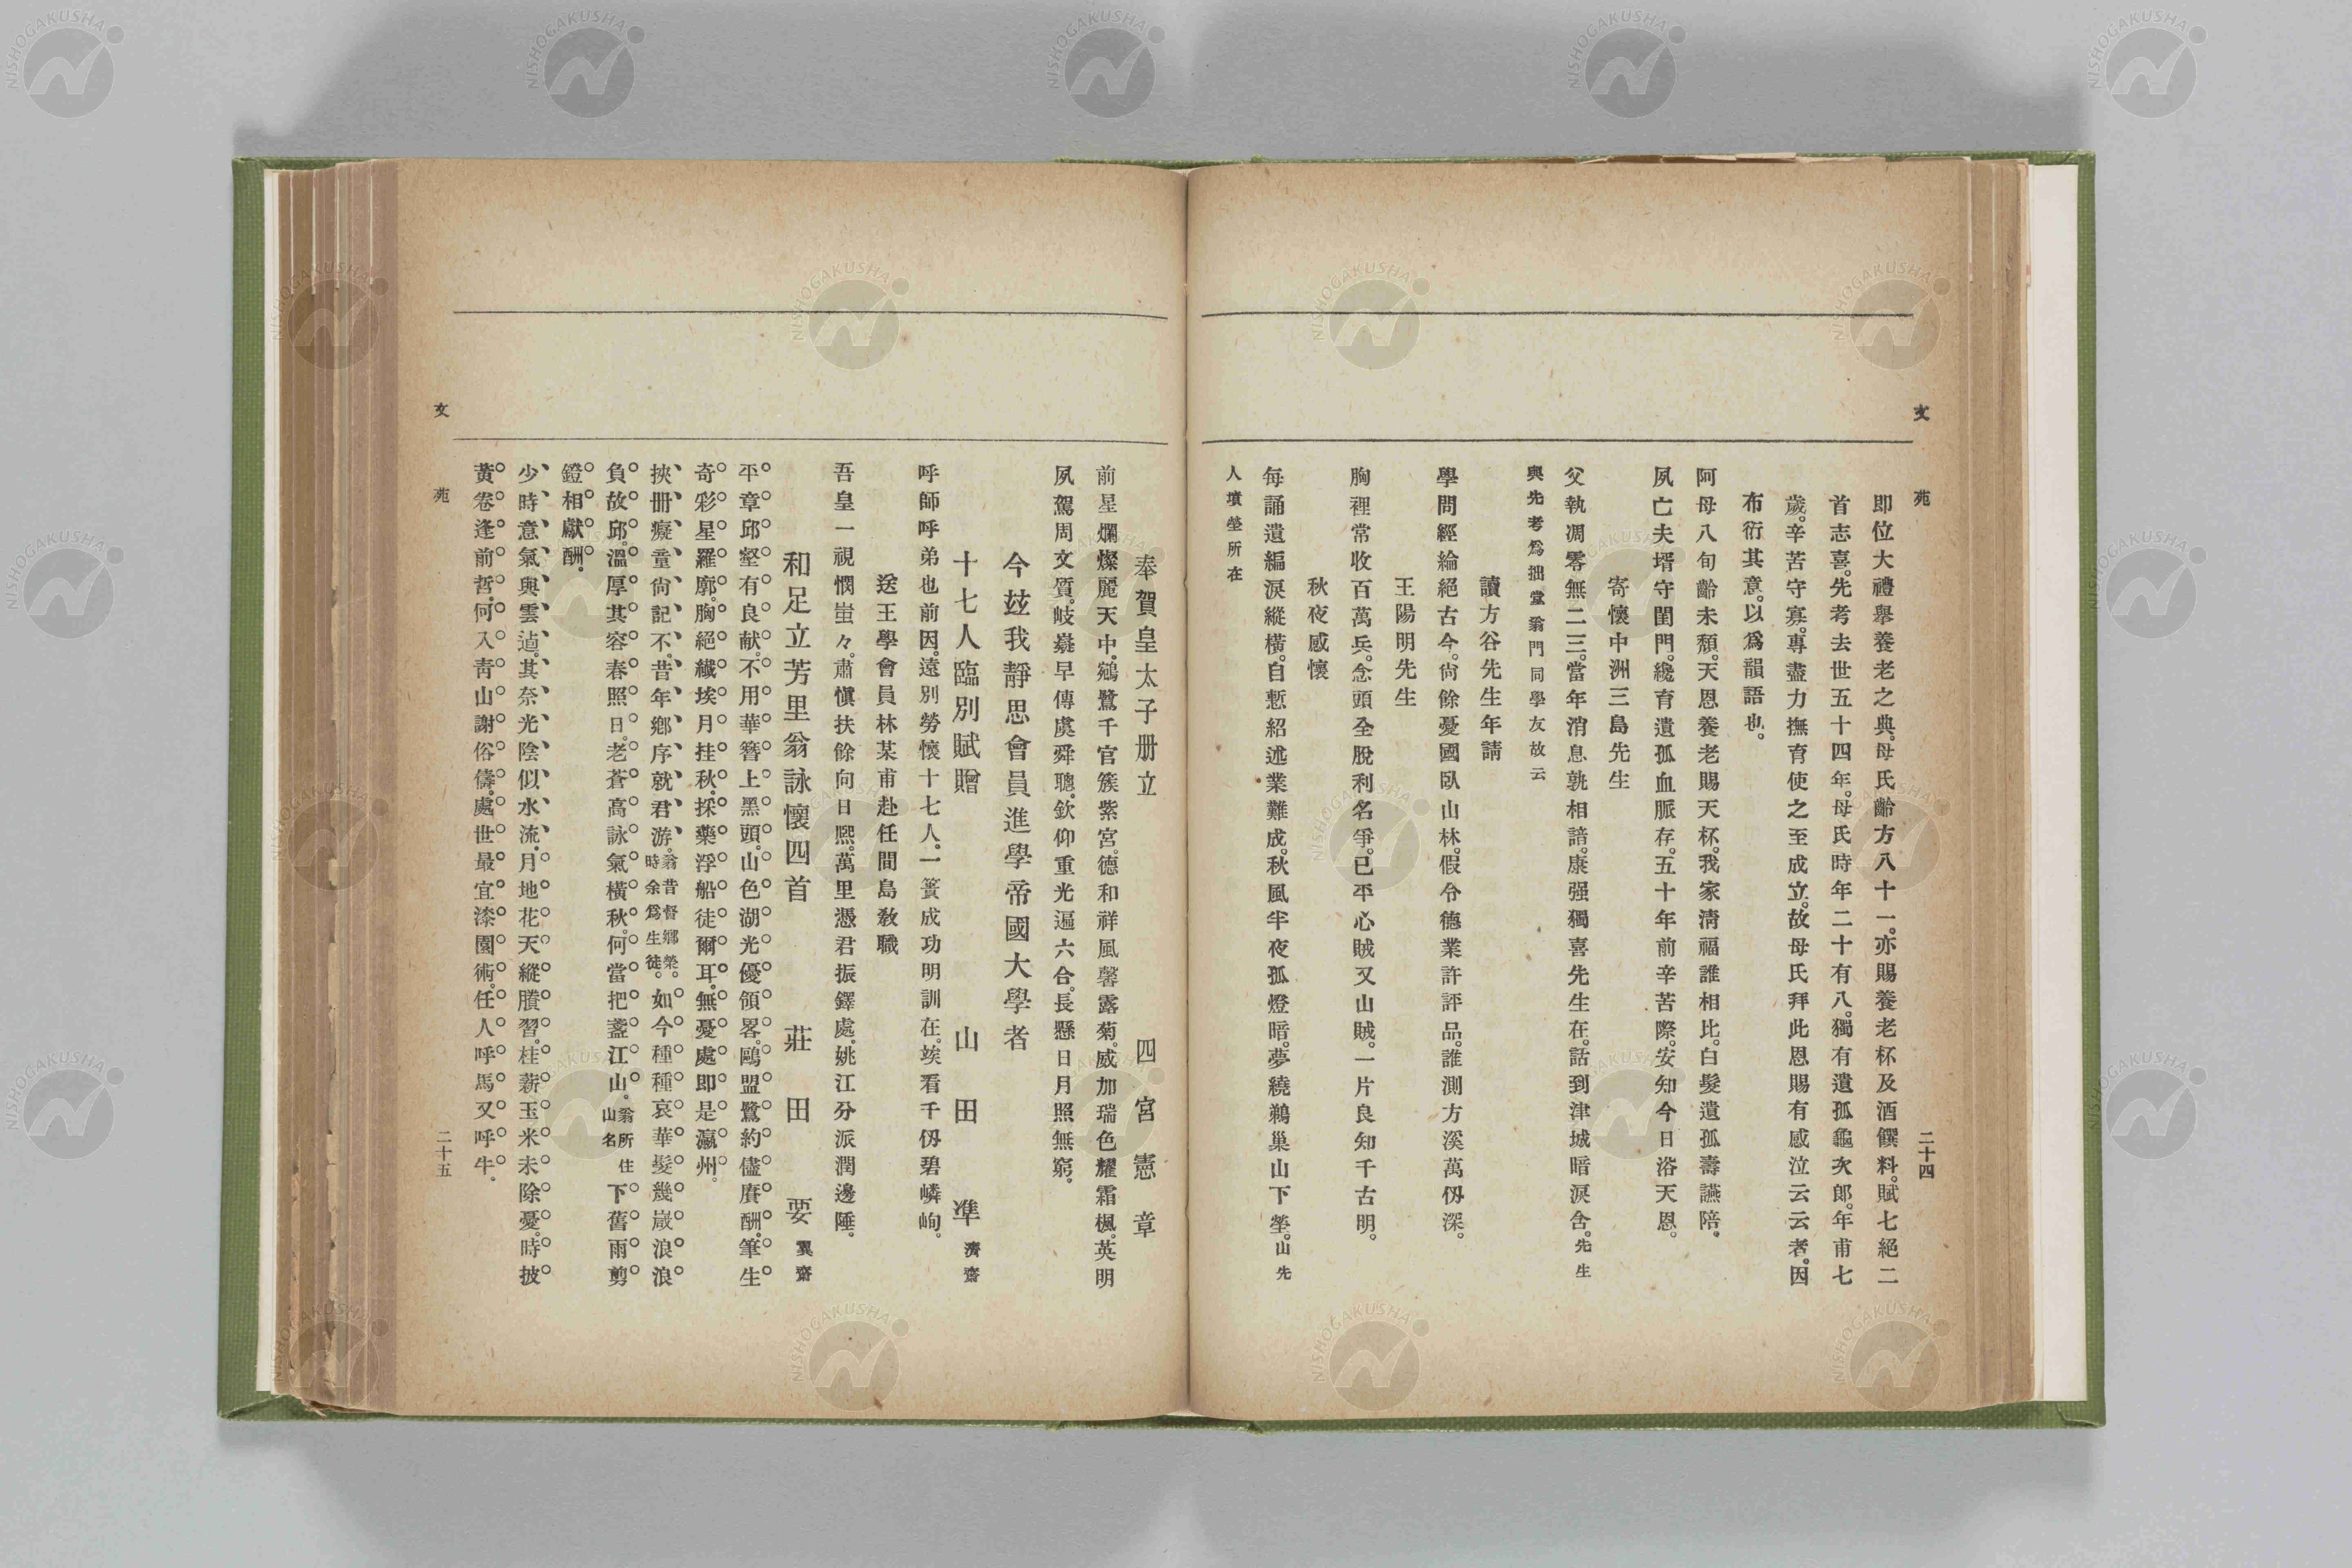 文苑
二十四
即位大禮擧養老之典。母氏齡方八十一。亦賜養老杯及酒饌料。賦七絕二
首志喜。先考去世五十四年。母氏時年二十有八。獨有遺孤龜次郎。年甫七
歲。辛苦守寡。專盡力撫育使之至成立。故母氏拜此恩賜有感泣云云者。因
布衍其意。以爲韻語也。
阿母八旬齡未頽。天恩養老賜天杯。我家淸福誰相比。白髮遺孤壽讌陪。
夙亡夫壻守閨門。纔育遺孤血脈存。五十年前辛苦際。安知今日浴天恩。
寄懷中洲三島先生
父執凋零無二三。當年消息孰相諳。康强獨喜先生在。話到津城暗淚含。先生
與先考爲拙堂翁門同學友故云
讀方谷先生年譜
學問經綸絕古今。尙餘憂國臥山林。假令德業許評品。誰測方溪萬仭深。
王陽明先生
胸裡常收百萬兵。念頭全脫利名爭。已平心賊又山賊。一片良知千古明。
秋夜感懷
每誦遺編淚縱橫。自慙紹述業難成。秋風半夜孤燈暗。夢繞鵜巢山下塋。山先
人墳塋所在
奉賀皇太子册立 四宮憲章
前星爛燦麗天中。鵷鷺千官簇紫宮。德和祥風馨露菊。威加瑞色耀霜楓。英明
夙駕周文質。岐嶷早傳虞舜聰。欽仰重光遍六合。長懸日月照無窮。
今玆我靜思會員進學帝國大學者
十七人臨別賦贈 山田準 濟齋
呼師呼弟也前因。遠別勞懷十七人。一簣成功明訓在。竢看千仭碧嶙峋。
送王學會員林某甫赴任間島敎職
吾皇一視憫蚩々。肅愼扶餘向日熙。萬里憑君振鐸處。姚江分派潤邊陲。
和足立芳里翁詠懷四首 莊田要 翼齋
平章邱壑有良猷。不用華簪上黑頭。山色湖光優領畧。鷗盟鷺約儘賡酬。筆生
奇彩星羅廓。胸絕纖埃月挂秋。採藥浮船徒爾耳。無憂處即是瀛州。
挾册癡童尙記不。昔年鄕序就君游。翁昔督鄕黌。時余爲生徒。如今種種哀華髮幾歲浪浪
負故邱。溫厚其容春照日。老蒼高詠氣橫秋。何當把盞江山。翁所住山名下舊雨剪
鐙相獻酬。
少時意氣與雲遒。其奈光陰似水流。月地花天縱賸習。桂薪玉米未除憂。時披
黃卷逢前哲。何入靑山謝俗儔。處世最宜漆園術。任人呼馬又呼牛。
文苑
二十五